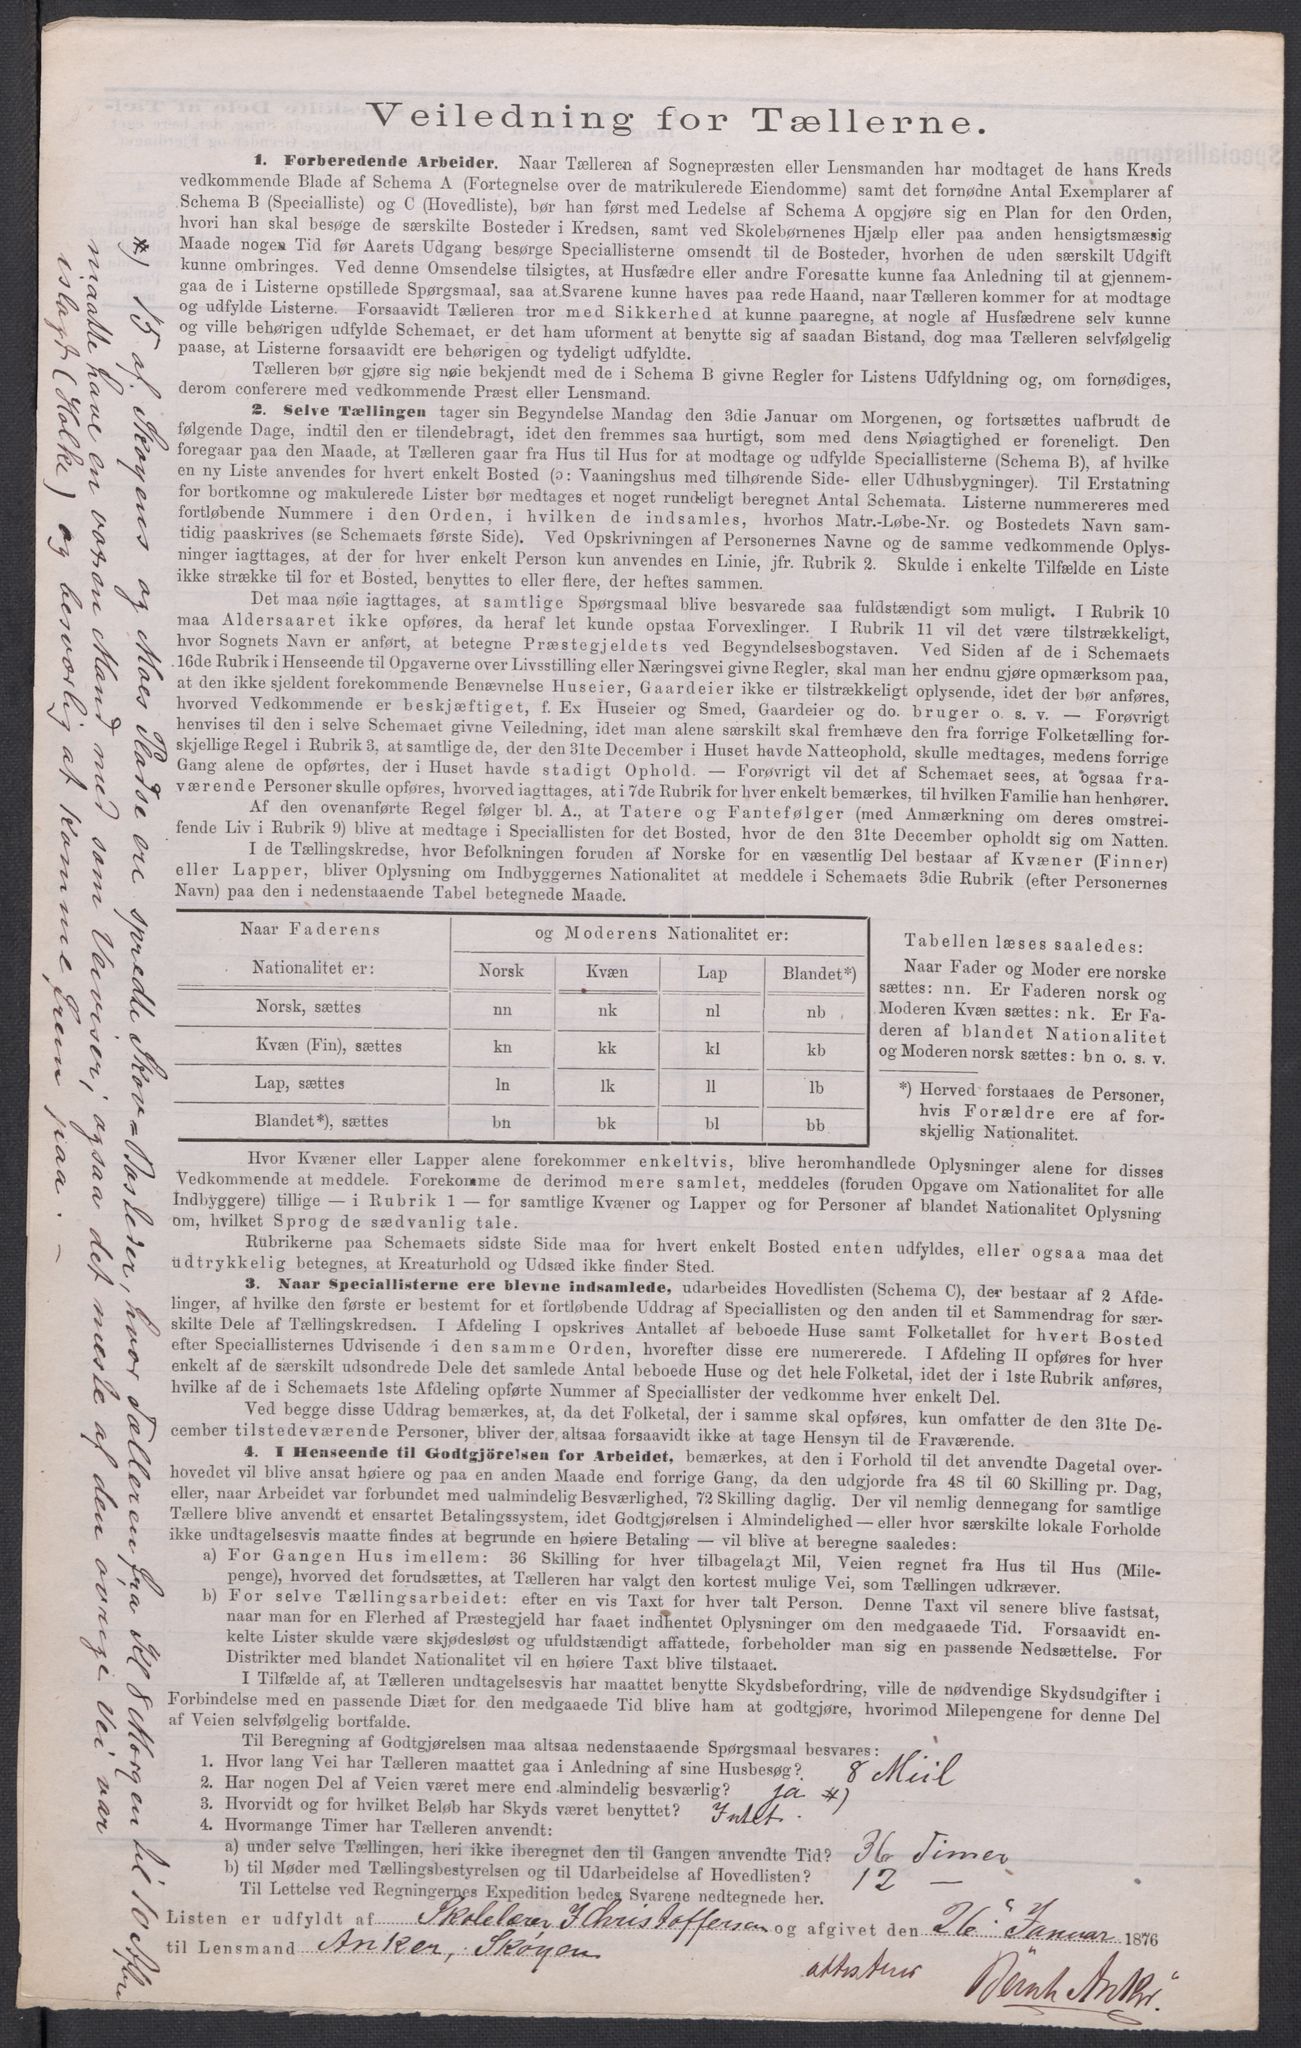 Veiledning for Tællerne.
1. Forberedende Arbeider. Naar Tælleren af Sognepræsten eller Lensmanden har modtaget de hans Kreds
vedkommende Blade af Schema A (Fortegnelse over de matrikulerede Eiendomme) samt det fornødne Antal Exemplarer af
Schema B (Specialliste) og C (Hovedliste), bør han først med Ledelse af Schema A opgjøre sig en Plan for den Orden,
hvori han skal besøge de særskilte Bosteder i Kredsen, samt ved Skolebørnenes Hjælp eller paa anden hensigtsmæssig
Maade nogen Tid før Aarets Udgang besørge Speciallisterne omsendt til de Bosteder, hvorhen de uden særskilt Udgift
kunne ombringes. Ved denne Omsendelse tilsigtes, at Husfædre eller andre Foresatte kunne faa Anledning til at gjennem-
gaa de i Listerne opstillede Spørgsmaal, saa at Svarene kunne haves paa rede Haand, naar Tælleren kommer for at modtage
og udfylde Listerne. Forsaavidt Tælleren tror med Sikkerhed at kunne paaregne, at nogle af Husfædrene selv kunne
og ville behørigen udfylde Schemaet, er det ham uforment at benytte sig af saadan Bistand, dog maa Tælleren selvfølgelig
paase, at Listerne forsaavidt ere behørigen og tydeligt udfyldte.
Tælleren bør gjøre sig nøie bekjendt med de i Schema B givne Regler for Listens Udfyldning og, om fornødiges,
derom conferere med vedkommende Præst eller Lensmand.
2. Selve Tællingen tager sin Begyndelse Mandag den 3die Januar om Morgenen, og fortsættes uafbrudt de
følgende Dage, indtil den er tilendebragt, idet den fremmes saa hurtigt, som med dens Nøiagtighed er foreneligt. Den
foregaar paa den Maade, at Tælleren gaar fra Hus til Hus for at modtage og udfylde Speciallisterne (Schema B), af hvilke
en ny Liste anvendes for hvert enkelt Bosted (ɔ: Vaaningshus med tilhørende Side- eller Udhusbygninger). Til Erstatning
for bortkomne og makulerede Lister bør medtages et noget rundeligt beregnet Antal Schemata. Listerne nummereres med
fortløbende Nummere i den Orden, i hvilken de indsamles, hvorhos Matr.-Løbe-Nr. og Bostedets Navn sam-
tidig paaskrives (se Schemaets første Side). Ved Opskrivningen af Personernes Navne og de samme vedkommende Oplys-
ninger iagttages, at der for hver enkelt Person kun anvendes en Linie, jfr. Rubrik 2. Skulde i enkelte Tilfælde en Liste
ikke strække til for et Bosted, benyttes to eller flere, der heftes sammen.
Det maa nøie iagttages, at samtlige Spørgsmaal blive besvarede saa fuldstændigt som muligt. I Rubrik 10
maa Aldersaaret ikke opføres, da heraf let kunde opstaa Forvexlinger. I Rubrik 11 vil det være tilstrækkeligt,
hvor Sognets Navn er anført, at betegne Præstegjeldets ved Begyndelsesbogstaven. Ved Siden af de i Schemaets
16de Rubrik i Henseende til Opgaverne over Livsstilling eller Næringsvei givne Regler, skal man her endnu gjøre opmærksom paa,
at den ikke sjeldent forekommende Benævnelse Huseier, Gaardeier ikke er tilstrækkeligt oplysende, idet der bør anføres,
hvorved Vedkommende er beskjæftiget, f. Ex Huseier og Smed, Gaardeier og do. bruger o. s. v. — Forøvrigt
henvises til den i selve Schemaet givne Veiledning, idet man alene særskilt skal fremhæve den fra forrige Folketælling for-
skjellige Regel i Rubrik 3, at samtlige de, der den 31te December i Huset havde Natteophold, skulle medtages, medens forrige
Gang alene de opførtes, der i Huset havde stadigt Ophold. — Forøvrigt vil det af Schemaet sees, at ogsaa fra-
værende Personer skulle opføres, hvorved iagttages, at i 7de Rubrik for hver enkelt bemærkes, til hvilken Familie han henhører.
Af den ovenanførte Regel følger bl. A., at Tatere og Fantefølger (med Anmærkning om deres omstrei-
fende Liv i Rubrik 9) blive at medtage i Speciallisten for det Bosted, hvor de den 31te December opholdt sig om Natten.
I de Tællingskredse, hvor Befolkningen foruden af Norske for en væsentlig Del bestaar af Kvæner (Finner)
eller Lapper, bliver Oplysning om Indbyggernes Nationalitet at meddele i Schemaets 3die Rubrik (efter Personernes
Navn) paa den i nedenstaaende Tabel betegnede Maade.
Naar Faderens og Moderens Nationalitet er:
Nationalitet er: Norsk Kvæn Lap Blandet*)
Norsk, sættes nn nk nl nb
Kvæn (Fin), sættes kn kk kl kb
Lap, sættes ln lk ll lb
Blandet*), sættes bn bk bl bb
Tabellen læses saaledes:
Naar Fader og Moder ere norske
sættes: nn. Er Faderen norsk og
Moderen Kvæn sættes: nk. Er Fa-
deren af blandet Nationalitet
og Moderen norsk sættes: bn o. s. v.
*) Herved forstaaes de Personer,
hvis Forældre ere af for-
skjellig Nationalitet.
Hvor Kvæner eller Lapper alene forekommer enkeltvis, blive heromhandlede Oplysninger alene for disses
Vedkommende at meddele. Forekomme de derimod mere samlet, meddeles (foruden Opgave om Nationalitet for alle
Indbyggere) tillige — i Rubrik 1 — for samtlige Kvæner og Lapper og for Personer af blandet Nationalitet Oplysning
om, hvilket Sprog de sædvanlig tale.
Rubrikerne paa Schemaets sidste Side maa for hvert enkelt Bosted enten udfyldes, eller ogsaa maa det
udtrykkelig betegnes, at Kreaturhold og Udsæd ikke finder Sted.
3. Naar Speciallisterne ere blevne indsamlede, udarbeides Hovedlisten (Schema C), der bestaar af 2 Afde-
linger, af hvilke den første er bestemt for et fortløbende Uddrag af Speciallisten og den anden til et Sammendrag for sær-
skilte Dele af Tællingskredsen. I Afdeling I opskrives Antallet af beboede Huse samt Folketallet for hvert Bosted
efter Speciallisternes Udvisende i den samme Orden, hvorefter disse ere numererede. I Afdeling II opføres for hver
enkelt af de særskilt udsondrede Dele det samlede Antal beboede Huse og det hele Folketal, idet der i 1ste Rubrik anføres,
hvilke af de i Schemaets 1ste Afdeling opførte Nummer af Speciallister der vedkomme hver enkelt Del.
Ved begge disse Uddrag bemærkes, at, da det Folketal, der i samme skal opføres, kun omfatter de den 31te De-
cember tilstedeværende Personer, bliver der altsaa forsaavidt ikke at tage Hensyn til de Fraværende.
4. I Henseende til Godtgjörelsen for Arbeidet, bemærkes, at den i Forhold til det anvendte Dagetal over-
hovedet vil blive ansat høiere og paa en anden Maade end forrige Gang, da den udgjorde fra 48 til 60 Skilling pr. Dag,
eller, naar Arbeidet var forbundet med ualmindelig Besværlighed, 72 Skilling daglig. Der vil nemlig dennegang for samtlige
Tællere blive anvendt et ensartet Betalingssystem, idet Godtgjørelsen i Almindelighed — eller hvor særskilte lokale Forholde
ikke undtagelsesvis maatte findes at begrunde en høiere Betaling — vil blive at beregne saaledes:
a) For Gangen Hus imellem: 36 Skilling for hver tilbagelagt Mil, Veien regnet fra Hus til Hus (Mile-
penge), hvorved det forudsættes, at Tælleren har valgt den kortest mulige Vei, som Tællingen udkræver.
b) For selve Tællingsarbeidet: efter en vis Taxt for hver talt Person. Denne Taxt vil senere blive fastsat,
naar man for en Flerhed af Præstegjeld har faaet indhentet Oplysninger om den medgaaede Tid. Forsaavidt en-
kelte Lister skulde være skjødesløst og ufuldstændigt affattede, forbeholder man sig en passende Nedsættelse. For
Distrikter med blandet Nationalitet vil en høiere Taxt blive tilstaaet.
I Tilfælde af, at Tælleren undtagelsesvis har maattet benytte Skydsbefordring, ville de nødvendige Skydsudgifter i
Forbindelse med en passende Diæt for den medgaaede Tid blive ham at godtgjøre, hvorimod Milepengene for denne Del
af Veien selvfølgelig bortfalde.
Til Beregning af Godtgjørelsen maa altsaa nedenstaaende Spørgsmaal besvares:
1. Hvor lang Vei har Tælleren maattet gaa i Anledning af sine Husbesøg? 8 Miil
2. Har nogen Del af Veien været mere end almindelig besværlig? ja *)
3. Hvorvidt og for hvilket Beløb har Skyds været benyttet? Intet.
4. Hvormange Timer har Tælleren anvendt:
a) under selve Tællingen, heri ikke iberegnet den til Gangen anvendte Tid? 36 Timer
b) til Møder med Tællingsbestyrelsen og til Udarbeidelse af Hovedlisten? 12 —
Til Lettelse ved Regningernes Expedition bedes Svarene nedtegnede her.
Listen er udfyldt af Skolelærer J Christoffersen og afgivet den 26. Januar 1876
til Lensmand Anker, Skøyen
attesteres
Bernh Anker.
*) 15 af Skoyens og Moes Pladse ere spredte Skov=Pladser, hvor Tælleren fra Kl 8 Morgen til 10 Aften
maatte have en voxen Mand med som Veviser, ogsaa det meste af den øvrige Vei var
islagt (Holke) og besværlig at komme frem paa. —